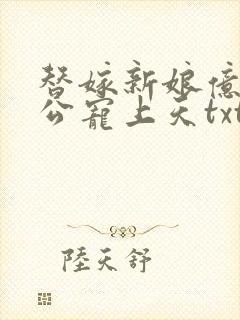 替嫁新娘億
公寵上天txt
陸天舒